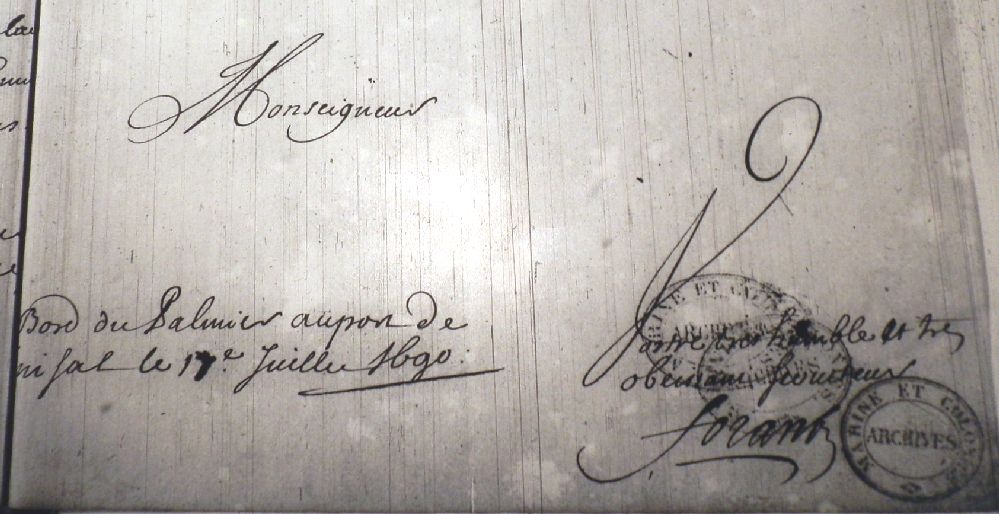 Monseigneur
Bord du Palmier au port de
le 17e Juillet 1690.
Vostre tres humble et tres
obeissant serviteur
forant
MARINE ET COLONIES
ARCHIVES
MARINE ET COLONIES
ARCHIVES